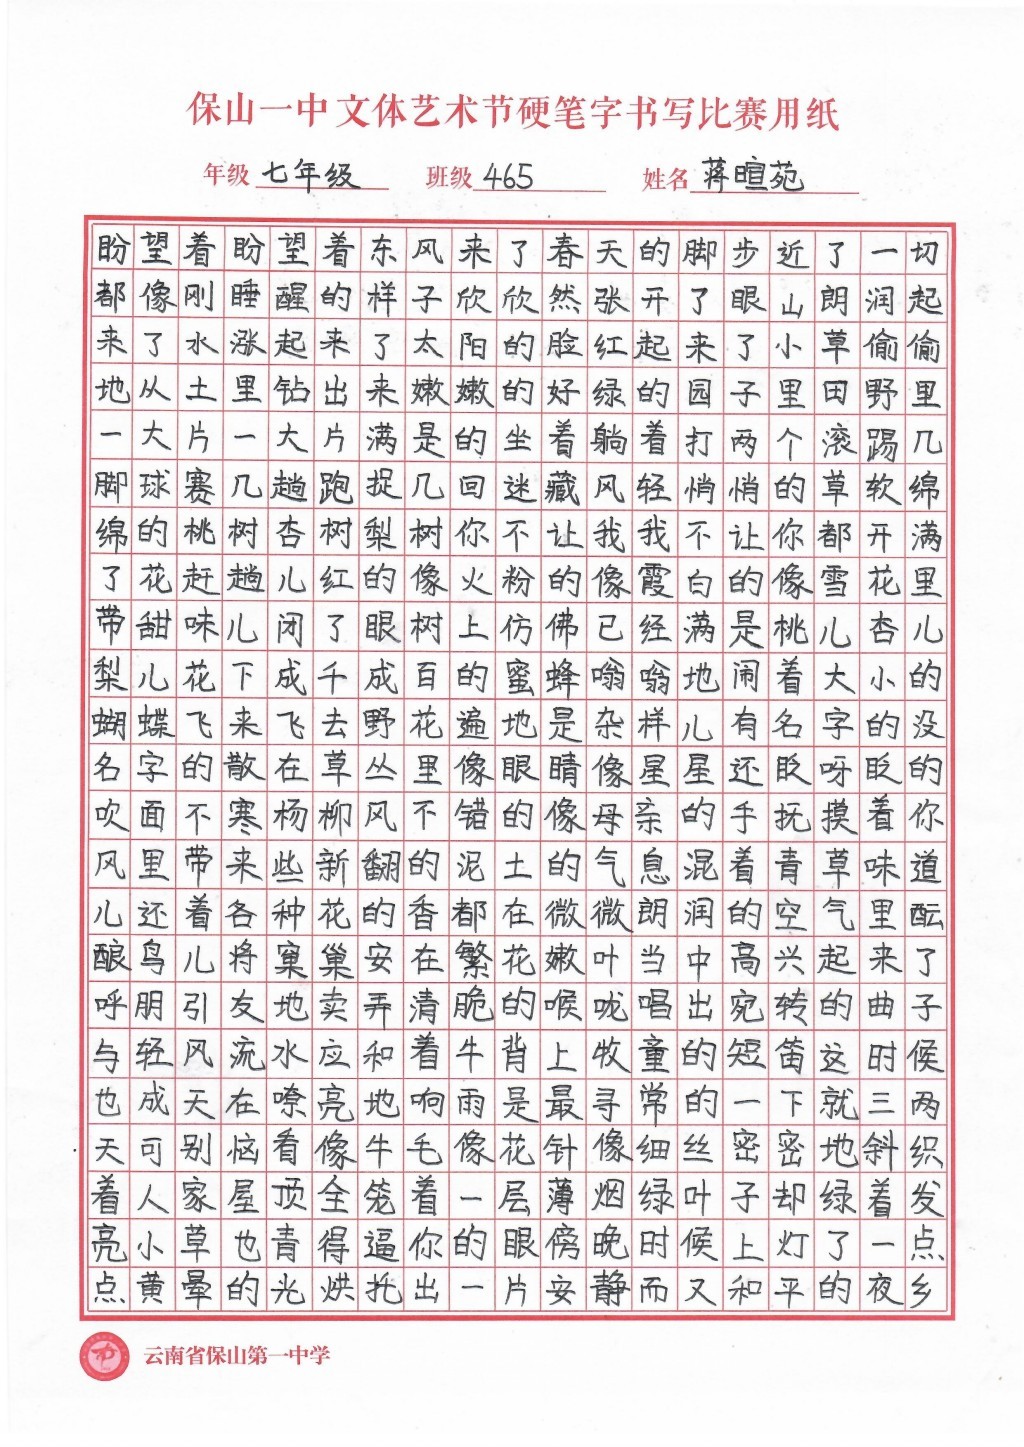 保山一中文体艺术节硬笔字书写比赛用纸
年级 七年级 班级 465 姓名 蒋暄苑
盼望着盼望着东风来了春天的脚步近了一切
都像刚睡醒的样子欣欣然张开了眼山朗润起
来了水涨起来了太阳的脸红起来了小草偷偷
地从土里钻出来嫩嫩的好绿的园子里田野里
一大片一大片满是的坐着躺着打两个滚踢几
脚球赛几趟跑捉几回迷藏风轻悄悄的草软绵
绵的桃树杏树梨树你不让我我不让你都开满
了花赶趟儿红的像火粉的像霞白的像雪花里
带甜味儿闭了眼树上仿佛已经满是桃儿杏儿
梨儿花下成千成百的蜜蜂嗡嗡地闹着大小的
蝴蝶飞来飞去野花遍地是杂样儿有名字的没
名字的散在草丛里像眼睛像星星还眨呀眨的
吹面不寒杨柳风不错的像母亲的手抚摸着你
风里带来些新翻的泥土的气息混着青草味道
儿还着各种花的香都在微微朗润的空气里酝
酿鸟儿将窠巢安在繁花嫩叶当中高兴起来了
呼朋引友地卖弄清脆的喉咙唱出宛转的曲子
与轻风流水应和着牛背上牧童的短笛这时候
也成天在嘹亮地响雨是最寻常的一下就三两
天可别恼看像牛毛像花针像细丝密密地斜织
着人家屋顶全笼着一层薄烟绿叶子却绿着发
亮小草也青得逼你的眼傍晚时候上灯了一点
点黄晕的光烘托出一片安静而又和平的夜乡
云南省保山第一中学